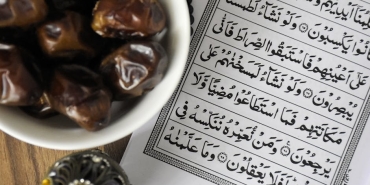 أَيْدِيهِمْ
كَانُوا يَكْسِبُونَ ۝ وَلَوْ نَشَاءُ لَطَمَسْنَا
عَلَىٰ أَعْيُنِهِمْ فَاسْتَبَقُوا الصِّرَاطَ فَأَنَّىٰ
يُبْصِرُونَ ۝ وَلَوْ نَشَاءُ لَمَسَخْنَاهُمْ عَلَىٰ
مَكَانَتِهِمْ فَمَا اسْتَطَاعُوا مُضِيًّا وَلَا
يَرْجِعُونَ ۝ وَمَنْ نُعَمِّرْهُ نُنَكِّسْهُ فِي
أَفَلَا يَعْقِلُونَ ۝ وَمَا عَلَّمْنَاهُ